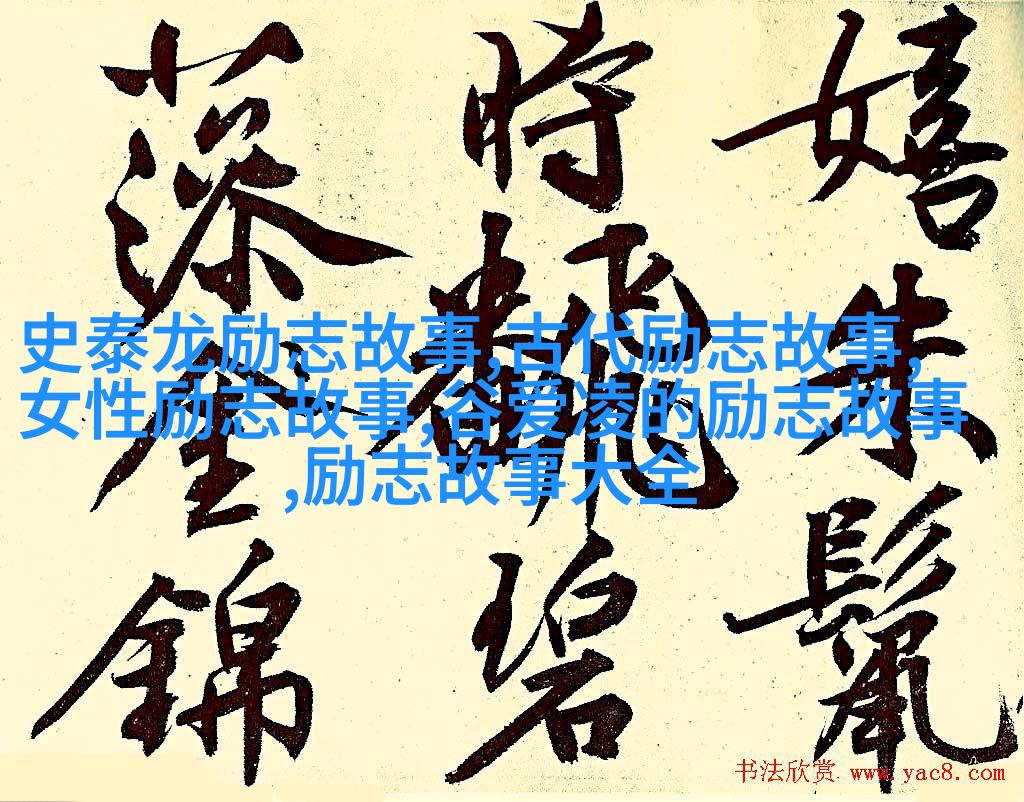 嬉朱鬣
時飜碧
藻錦
史泰龙励志故事,古代励志故事,
女性励志故事,谷爱凌的励志故事
,励志故事大全
书法欣赏 www.yac8.com